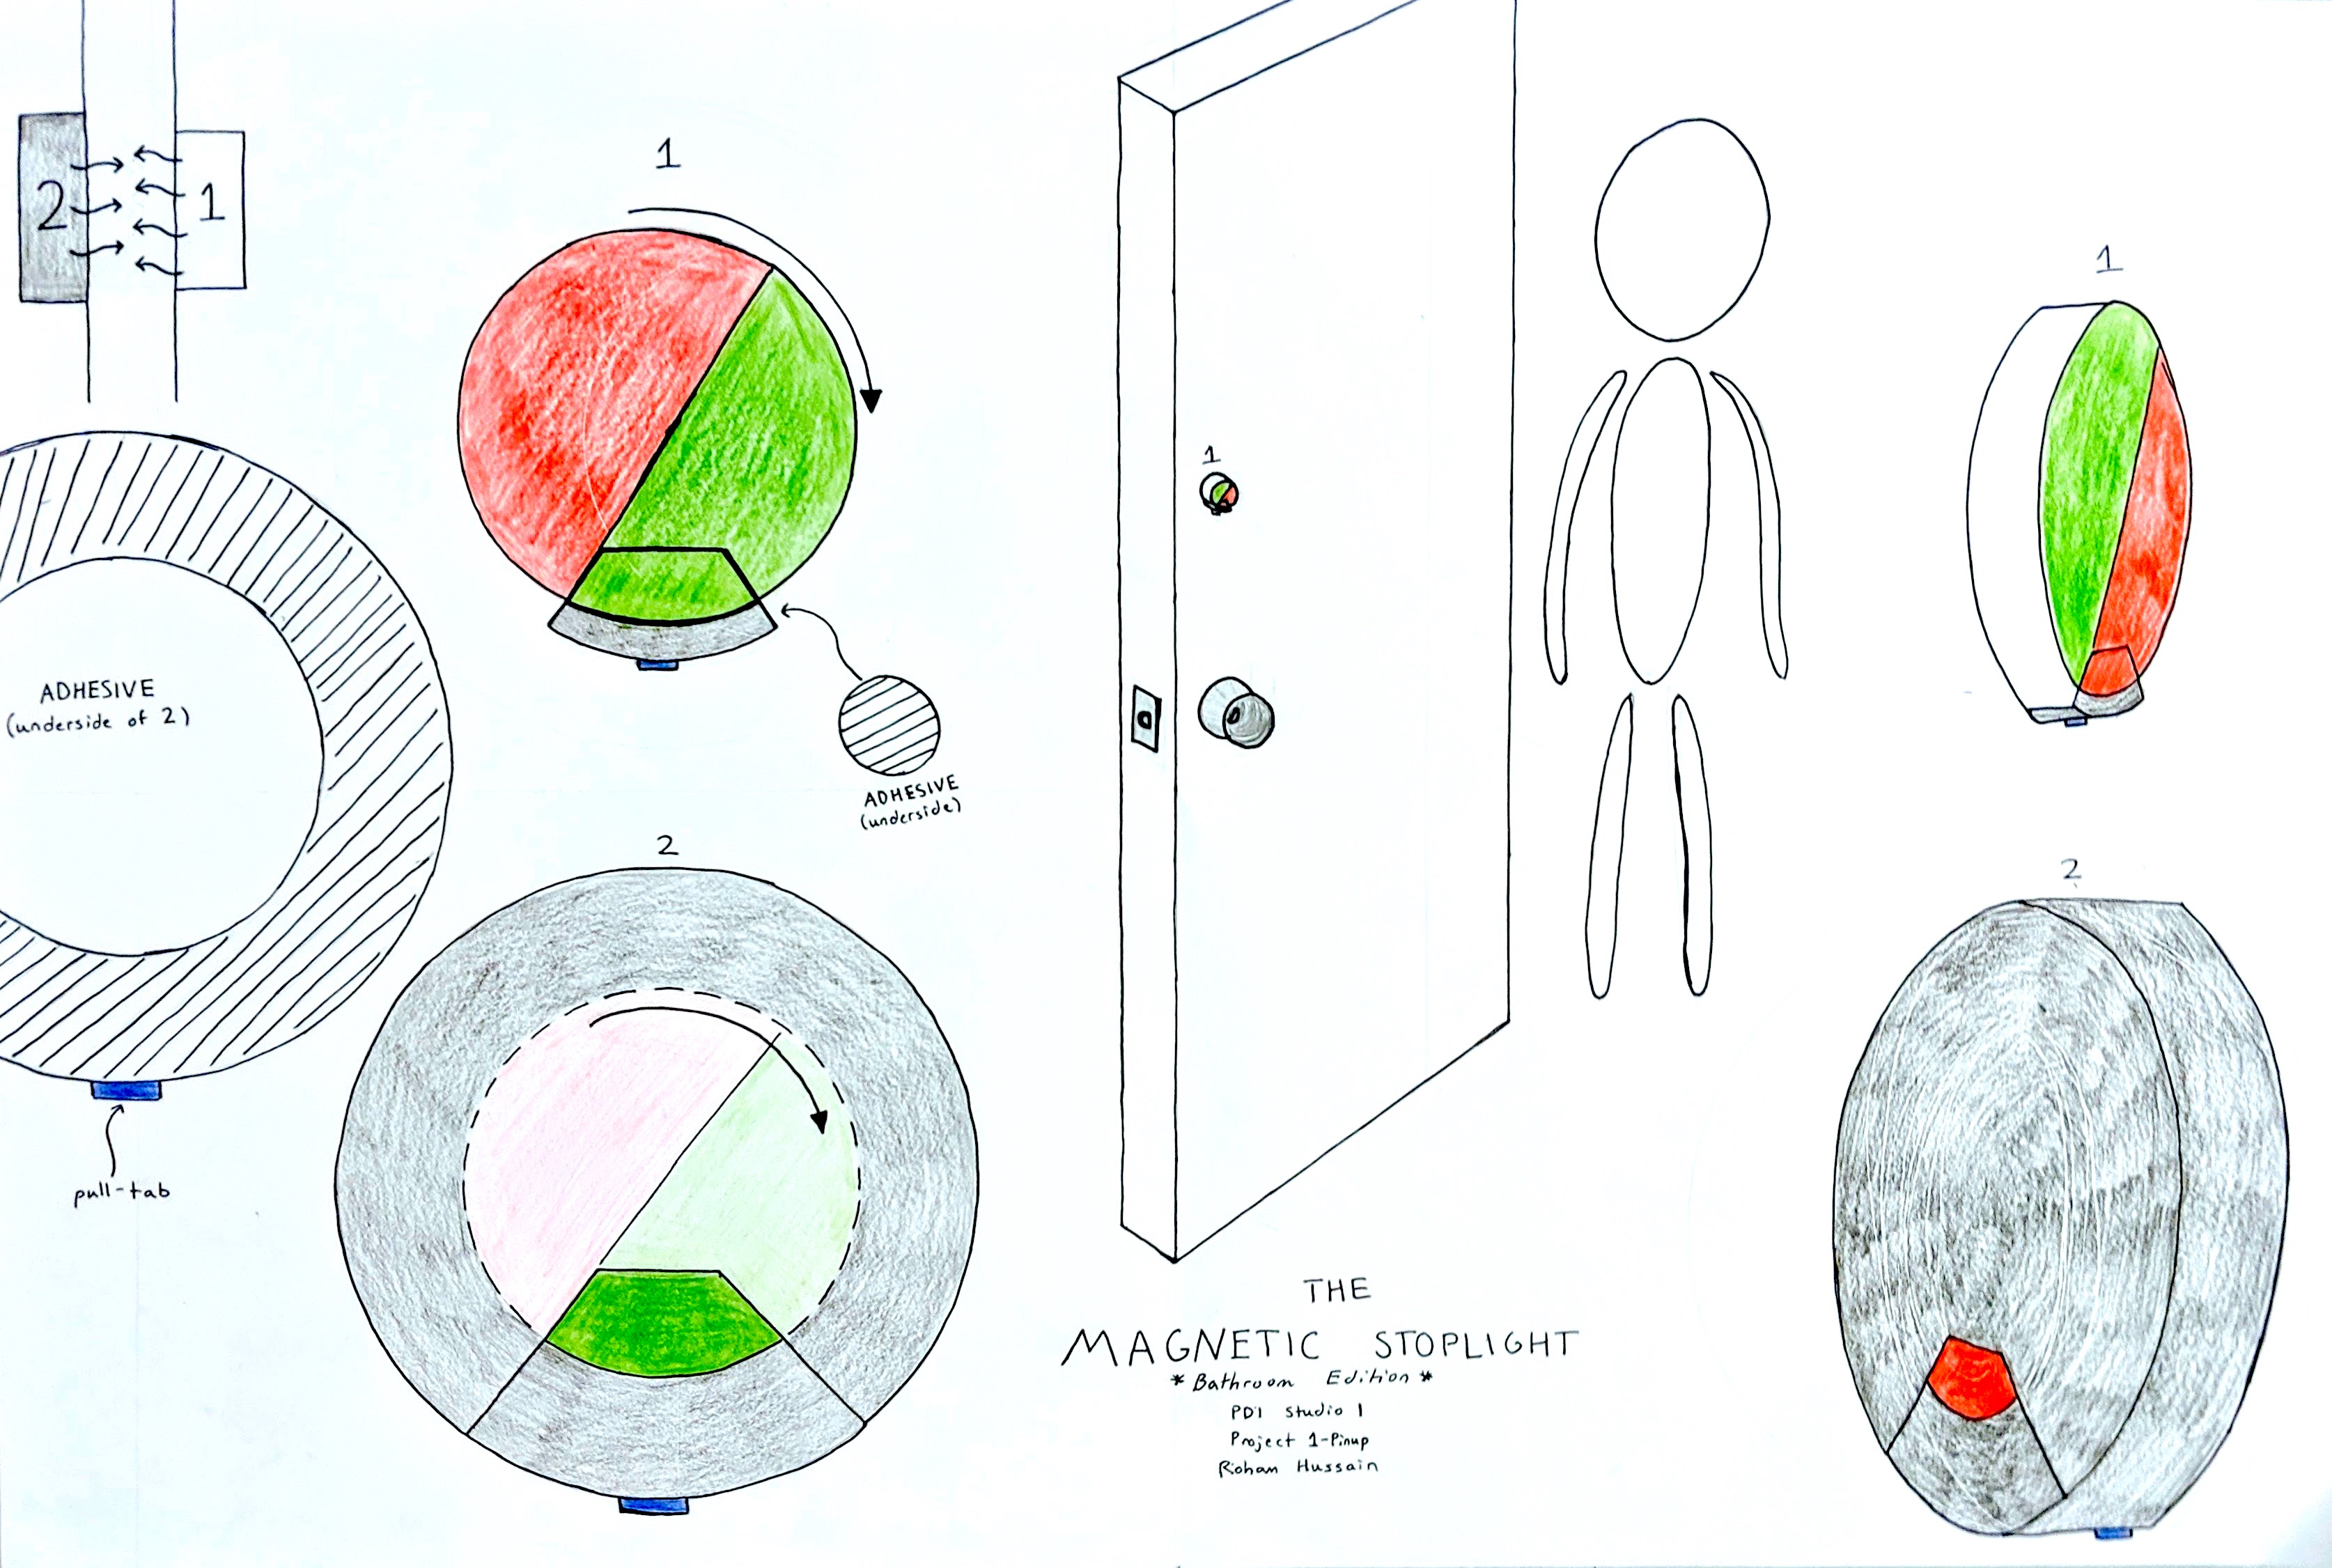 2
1
ADHESIVE
(underside of 2)
pull-tab
1
ADHESIVE
(underside)
2
1
1
2
THE
MAGNETIC STOPLIGHT
* Bathroom Edition *
PDI Studio 1
Project 1-Pinup
Rohan Hussain